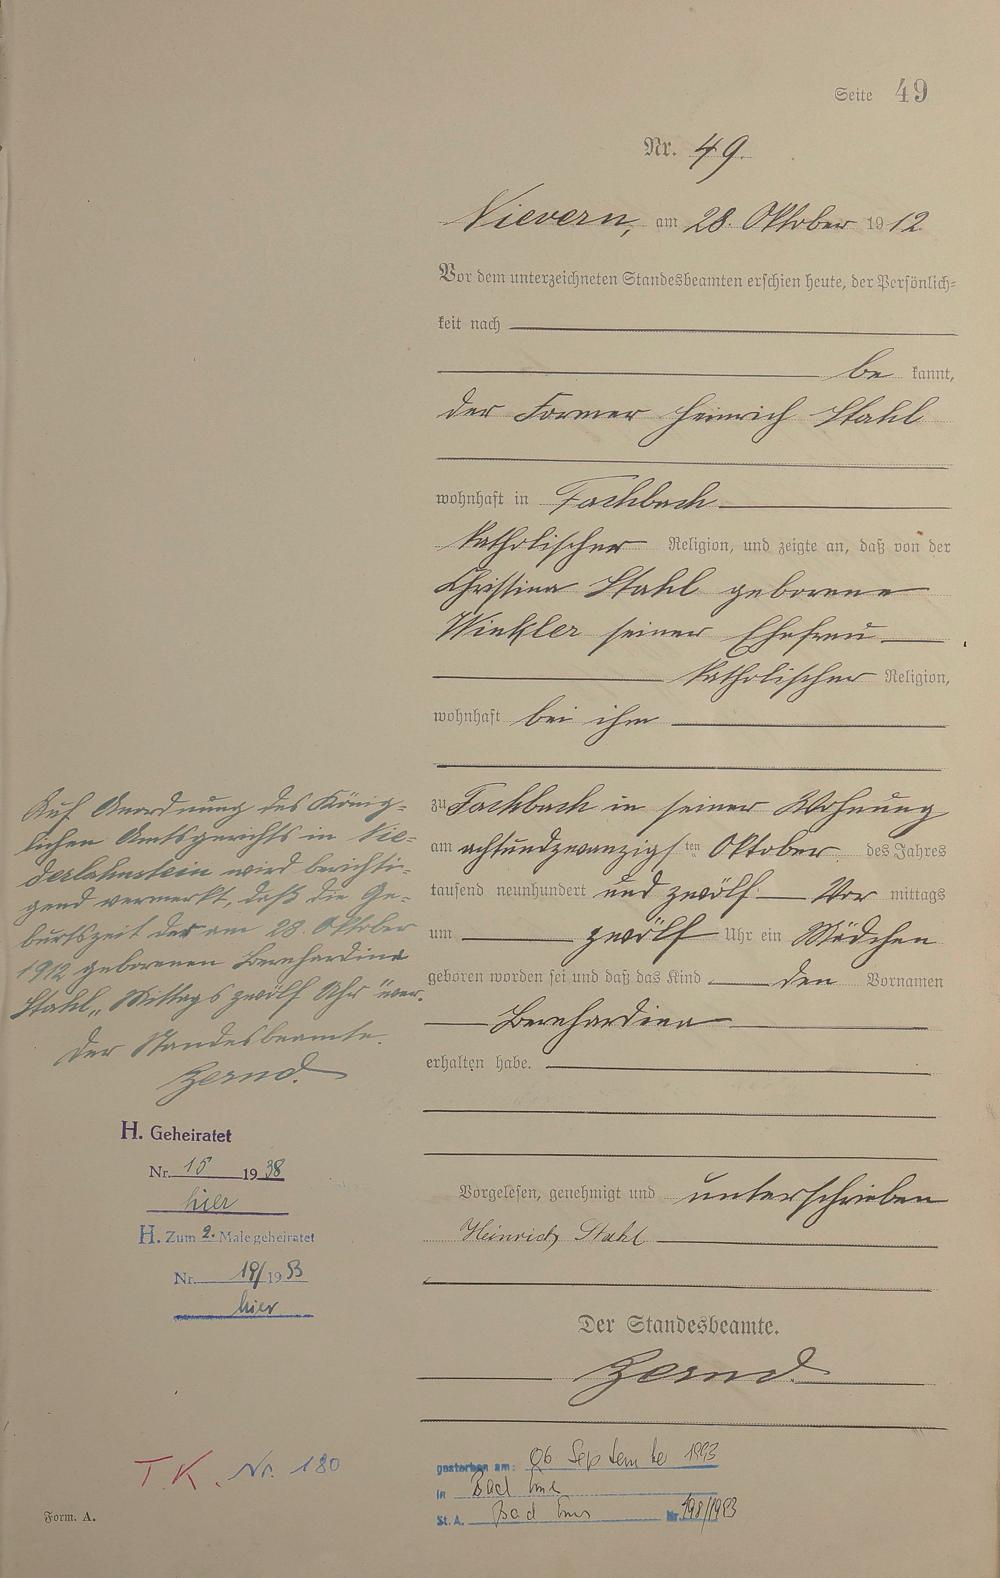 Seite 49
Nr. 49.
Nievern, am 28. Oktober 1912.
Vor dem unterzeichneten Standesbeamten erschien heute, der Persönlich=
keit nach
be kannt,
der Former Heinrich Stahl
wohnhaft in Fachbach
katholischer Religion, und zeigte an, daß von der
Christina Stahl geborene
Winkler seiner Ehefrau
katholischer Religion,
wohnhaft bei ihm
zu Fachbach in seiner Wohnung
am achtundzwanzigsten Oktober des Jahres
tausend neunhundert und zwölf Vor mittags
um zwölf Uhr ein Mädchen
geboren worden sei und daß das Kind den Vornamen
Bernhardina
erhalten habe.
Vorgelesen, genehmigt und unterschrieben
Heinrich Stahl
Der Standesbeamte.
Zernd.
Auf Anordnung des König=
lichen Amtsgerichts in Nie=
derlahnstein wird berichti=
gend vermerkt, daß die Ge=
burtszeit der am 28. Oktober
1912 geborenen Bernhardina
Stahl „Mittags zwölf Uhr" war.
Der Standesbeamte.
Zernd.
H. Geheiratet
Nr. 15 1938
hier
H. Zum 2. Male geheiratet
Nr. 19/1953
hier
T. K. Nr. 180
gestorben am: 06 September 1993
in Bad Ems
St. A. Bad Ems Nr.
Form. A.